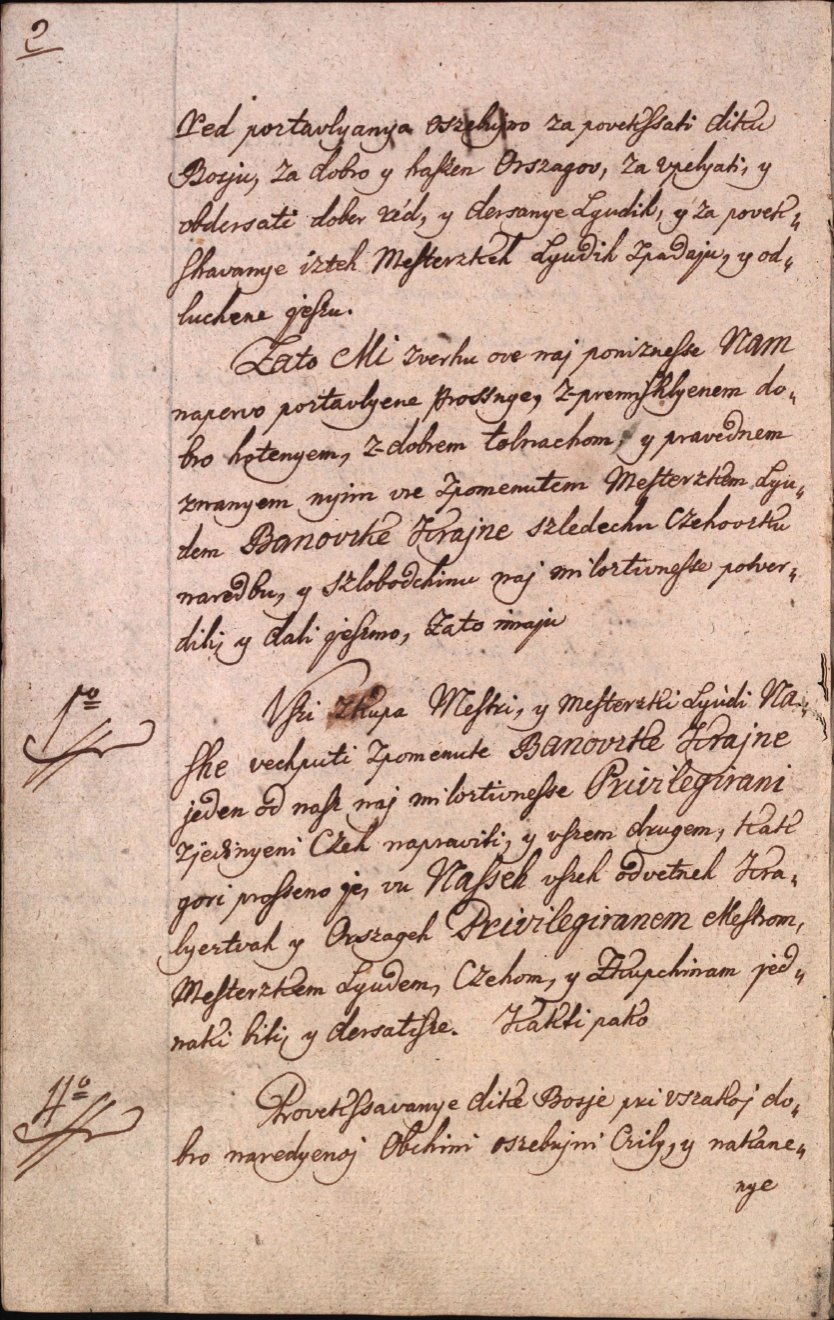 2
red poſtavlyanya oszebujno za povekſsati diku
Bosju, za dobro y haſzen Orszagov, za vpelyati, y
obdersati dober réd, y dersanye Lyudih, y za povek„
ſhavanye izteh Meſterzkeh Lyudih zpadaju, y od„
luchene jeſzu.
Zato Mi zverhu ove naj poniznesſe Nam
napervo poſtavlyene proſsnye, z-premiſhlyenem do„
bro hotenyem, z-dobrem tolnachom, y pravednem
znanyem nyim vre zpomenutem Meſterzkem Lyu„
dem Banovzke Krajne szledechu Czehovzku
naredbu, y szlobodchinu naj miloztivneſse potver„
dili, y dali jeſzmo, zato imaju
1º
Vſzi zkupa Meſtri, y meſterzki Lyudi Na„
ſhe vechputi zpomenute Banovzke Krajne
jeden od naſz naj miloztivneſse Privilegirani
zjedinyeni Czeh napraviti, y vſzem drugem, kak
gori proſseno je, vu Naſseh vſzeh odvetneh Kra„
lyeztvah y Orszageh Privilegiranem Meſtrom,
Meſterzkem Lyudem, Czehom, y Zkupchinam jed„
naki biti, y dersatiſze. Kakti pako
2º
Povekſsavanye dike Bosje pri vszakoj do„
bro naredyenoj Obchini oszebujni Czily, y nakane„
nye